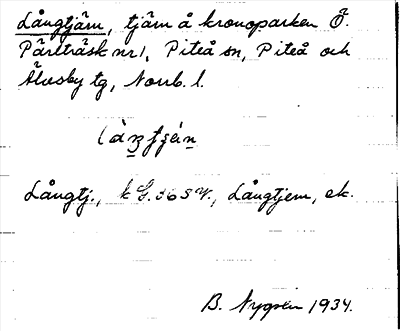 Långtjärn, tjärn å kronoparken Ö.
Pärlträsk nr 1, Piteå sn, Piteå och
Älvsby tg, Norrb. l.
Långtj., k G. 36 S V., Långtjern, ek.
B. Nygren 1934.